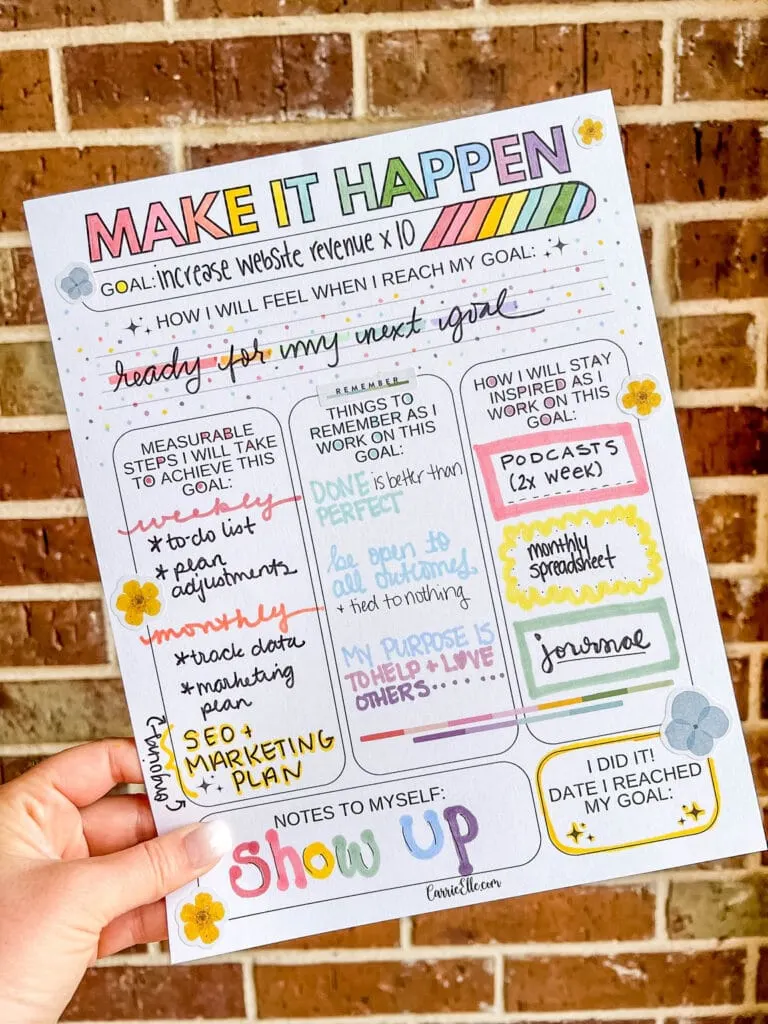 MAKE IT HAPPEN
GOAL: increase website revenue x 10
HOW I WILL FEEL WHEN I REACH MY GOAL:
ready for my next goal
MEASURABLE
STEPS I WILL TAKE
TO ACHIEVE THIS
GOAL:
weekly
*to do list
*plan
adjustments
monthly
*track data
*marketing
plan
SEO +
MARKETING
PLAN
REMEMBER
THINGS TO
REMEMBER AS I
WORK ON THIS
GOAL:
DONE is better than
PERFECT
be open to
all outcomes
+ tied to nothing
MY PURPOSE IS
TO HELP + LOVE
OTHERS........
HOW I WILL STAY
INSPIRED AS I
WORK ON THIS
GOAL:
PODCASTS
(2x WEEK)
monthly
spreadsheet
journal
NOTES TO MYSELF:
Show UP
I DID IT!
DATE I REACHED
MY GOAL:
CarrieElle.com